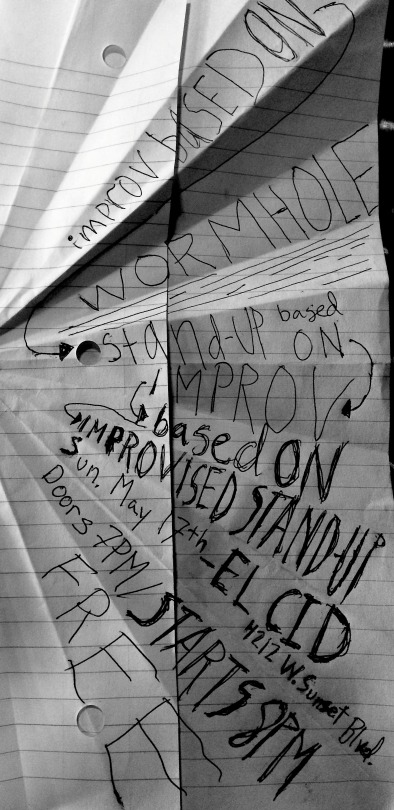 improv based ON
WORMHOLE
stand-UP based ON
IMPROV
based ON
IMPROVISED STAND-UP
Sun. May 17th - EL CID
4212 W. Sunset Blvd.
Doors 7PM / STARTS 8PM
FREE